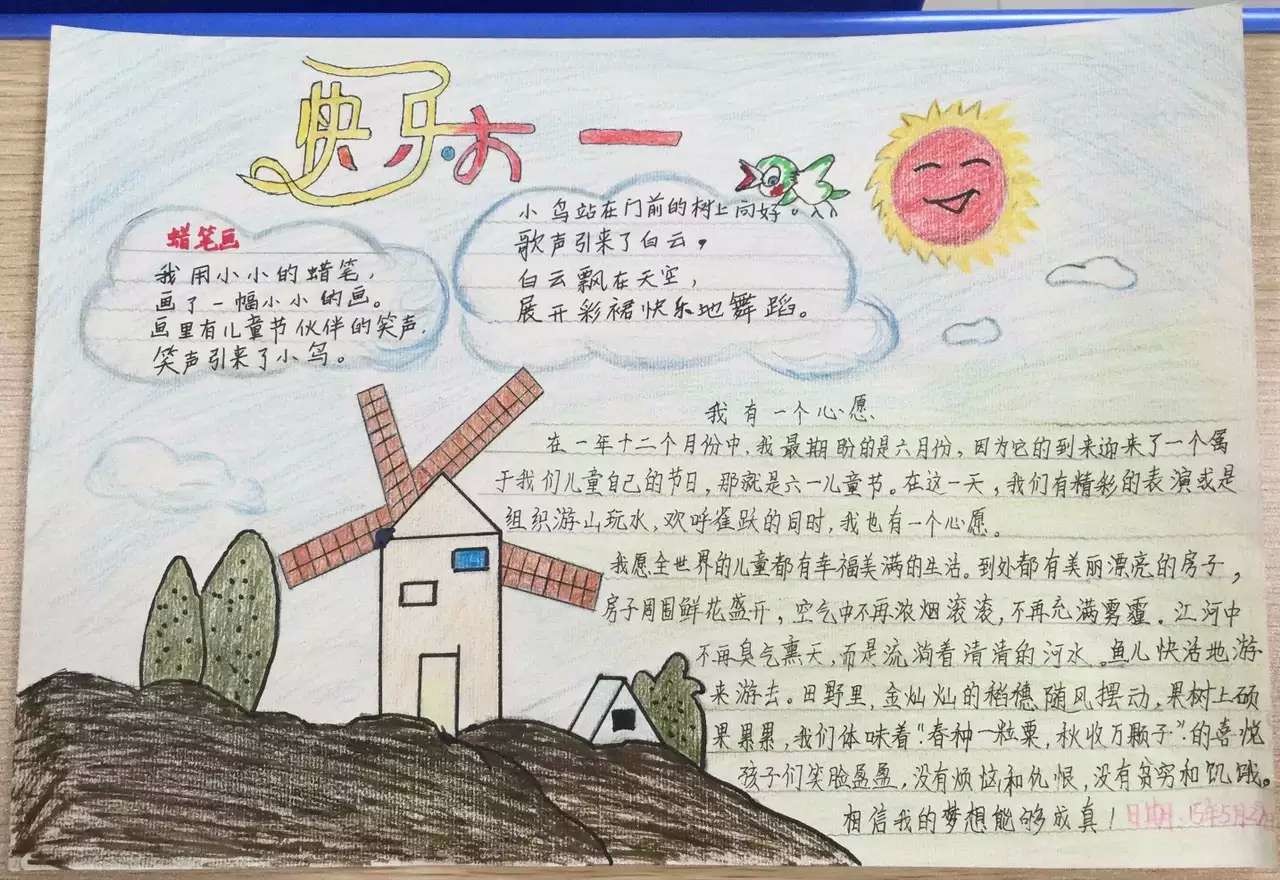 快乐六一
蜡笔画
我用小小的蜡笔,
画了一幅小小的画。
画里有儿童节伙伴的笑声.
笑声引来了小鸟。
小鸟站在门前的树上问好。
歌声引来了白云,
白云飘在天空,
展开彩裙快乐地舞蹈。
我有一个心愿
在一年十二个月份中,我最期盼的是六月份,因为它的到来迎来了一个属
于我们儿童自己的节日,那就是六一儿童节。在这一天,我们有精彩的表演或是
组织游山玩水,欢呼雀跃的同时,我也有一个心愿。
我愿全世界的儿童都有幸福美满的生活。到处都有美丽漂亮的房子,
房子周围鲜花盛开,空气中不再浓烟滚滚,不再充满雾霾。江河中
不再臭气熏天,而是流淌着清清的河水。鱼儿快活地游
来游去。田野里,金灿灿的稻穗随风摆动,果树上硕
果累累,我们体味着“春种一粒粟,秋收万颗子”的喜悦
孩子们笑脸盈盈,没有烦恼和仇恨,没有贫穷和饥饿。
相信我的梦想能够成真!
日期.15年5月